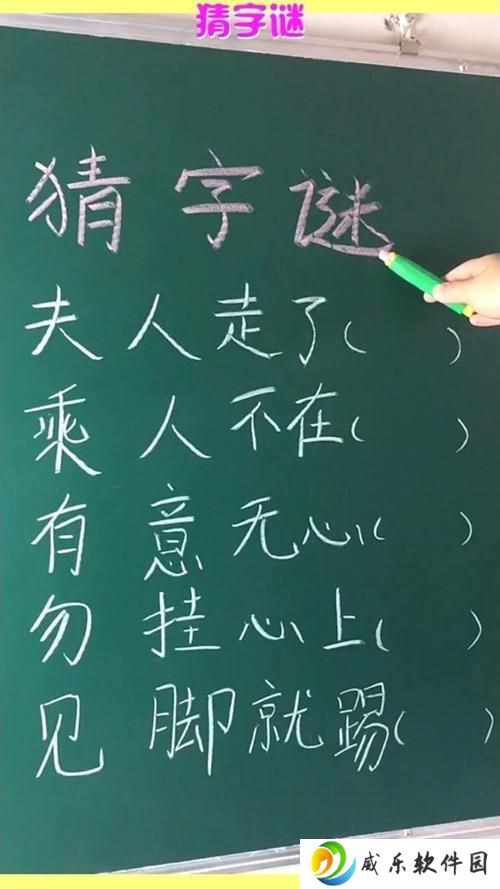 猜字谜
猜字谜
夫人走了( )
乘人不在( )
有意无心( )
勿挂心上( )
见脚就踢( )
威乐软件园